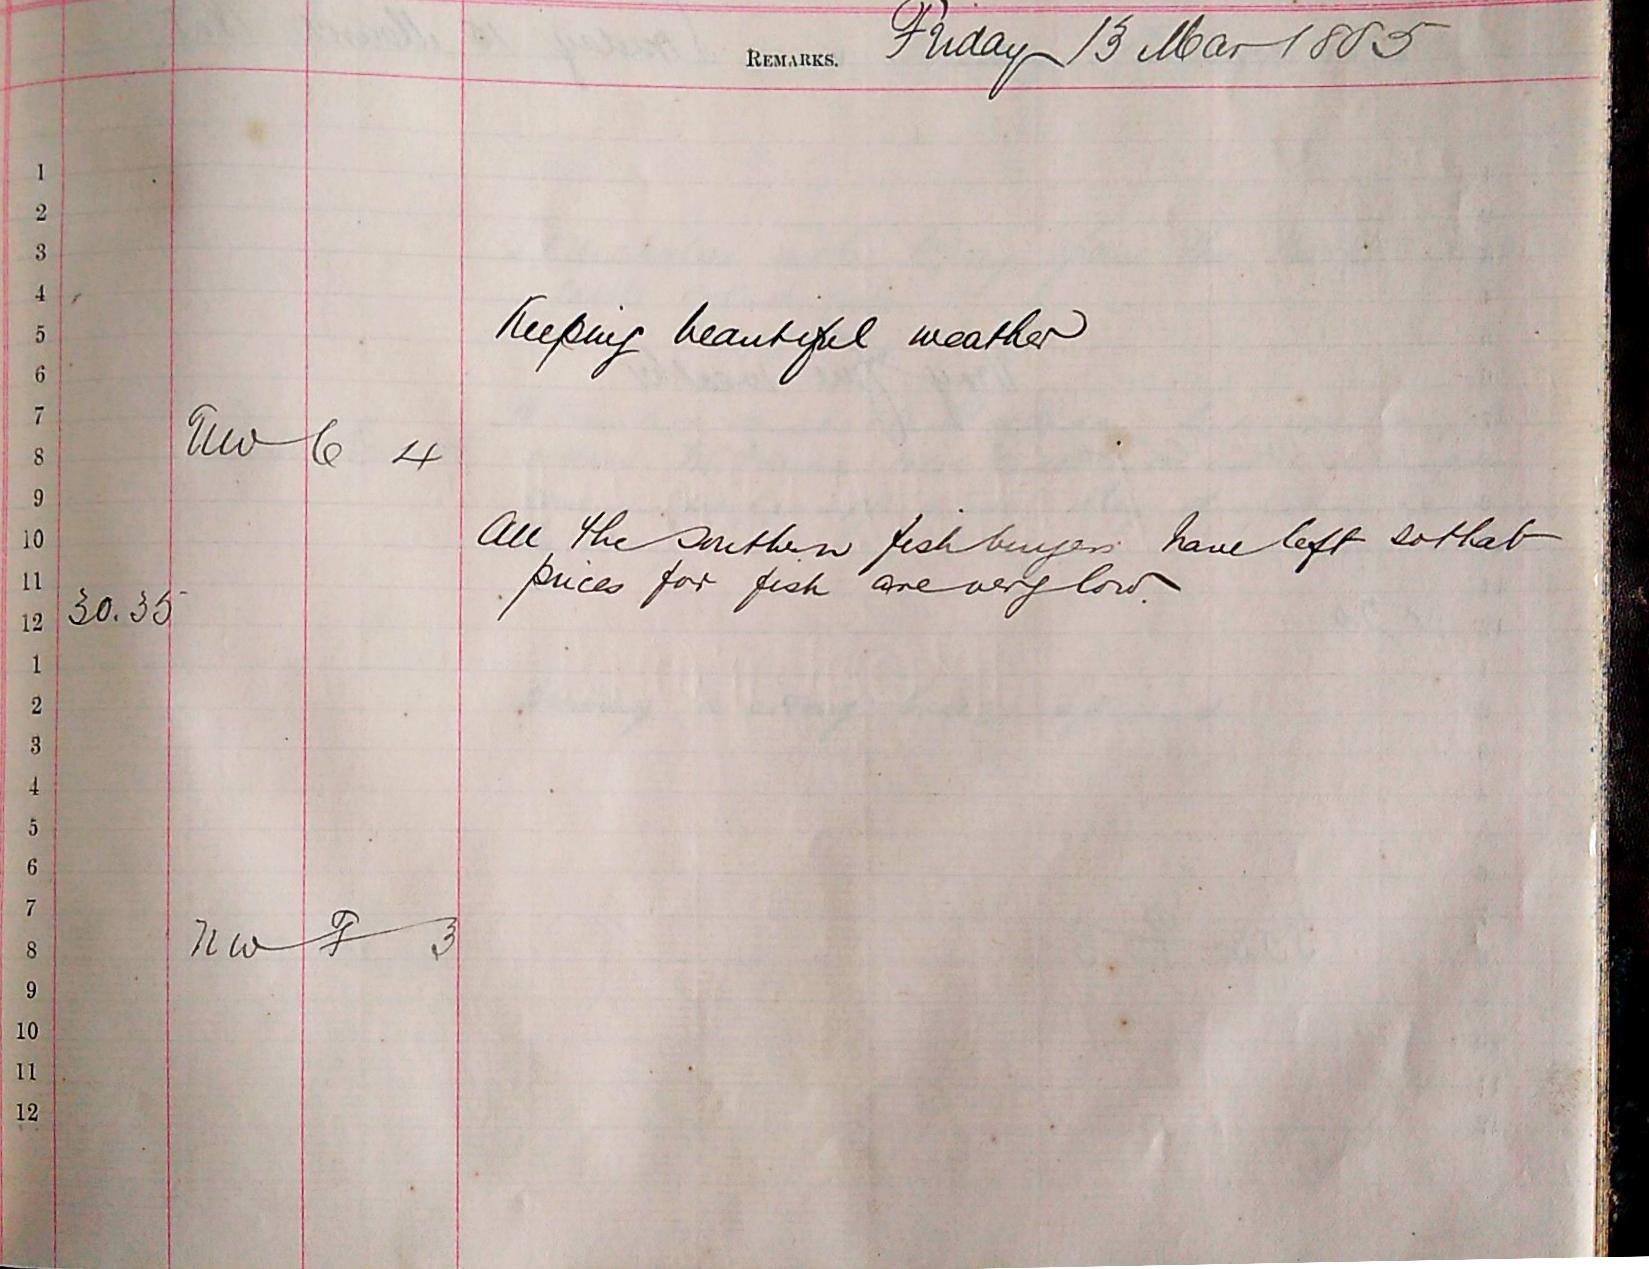 REMARKS. Friday 13 Mar 1885
1
2
3
4
5 Keeping beautiful weather
6
7
8 NW 6 4
9
10 All the southern fish buyers have left so that
11 prices for fish are very low.
12 30.35
1
2
3
4
5
6
7
8 NW F 3
9
10
11
12